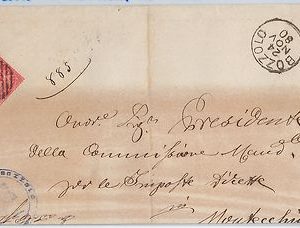 BOZZOLO
24
NOV
80
885
Onor. Sig. Presidente
della Commissione Mand.
per le Imposte Dirette
in
Montecchi
BOZZOLO